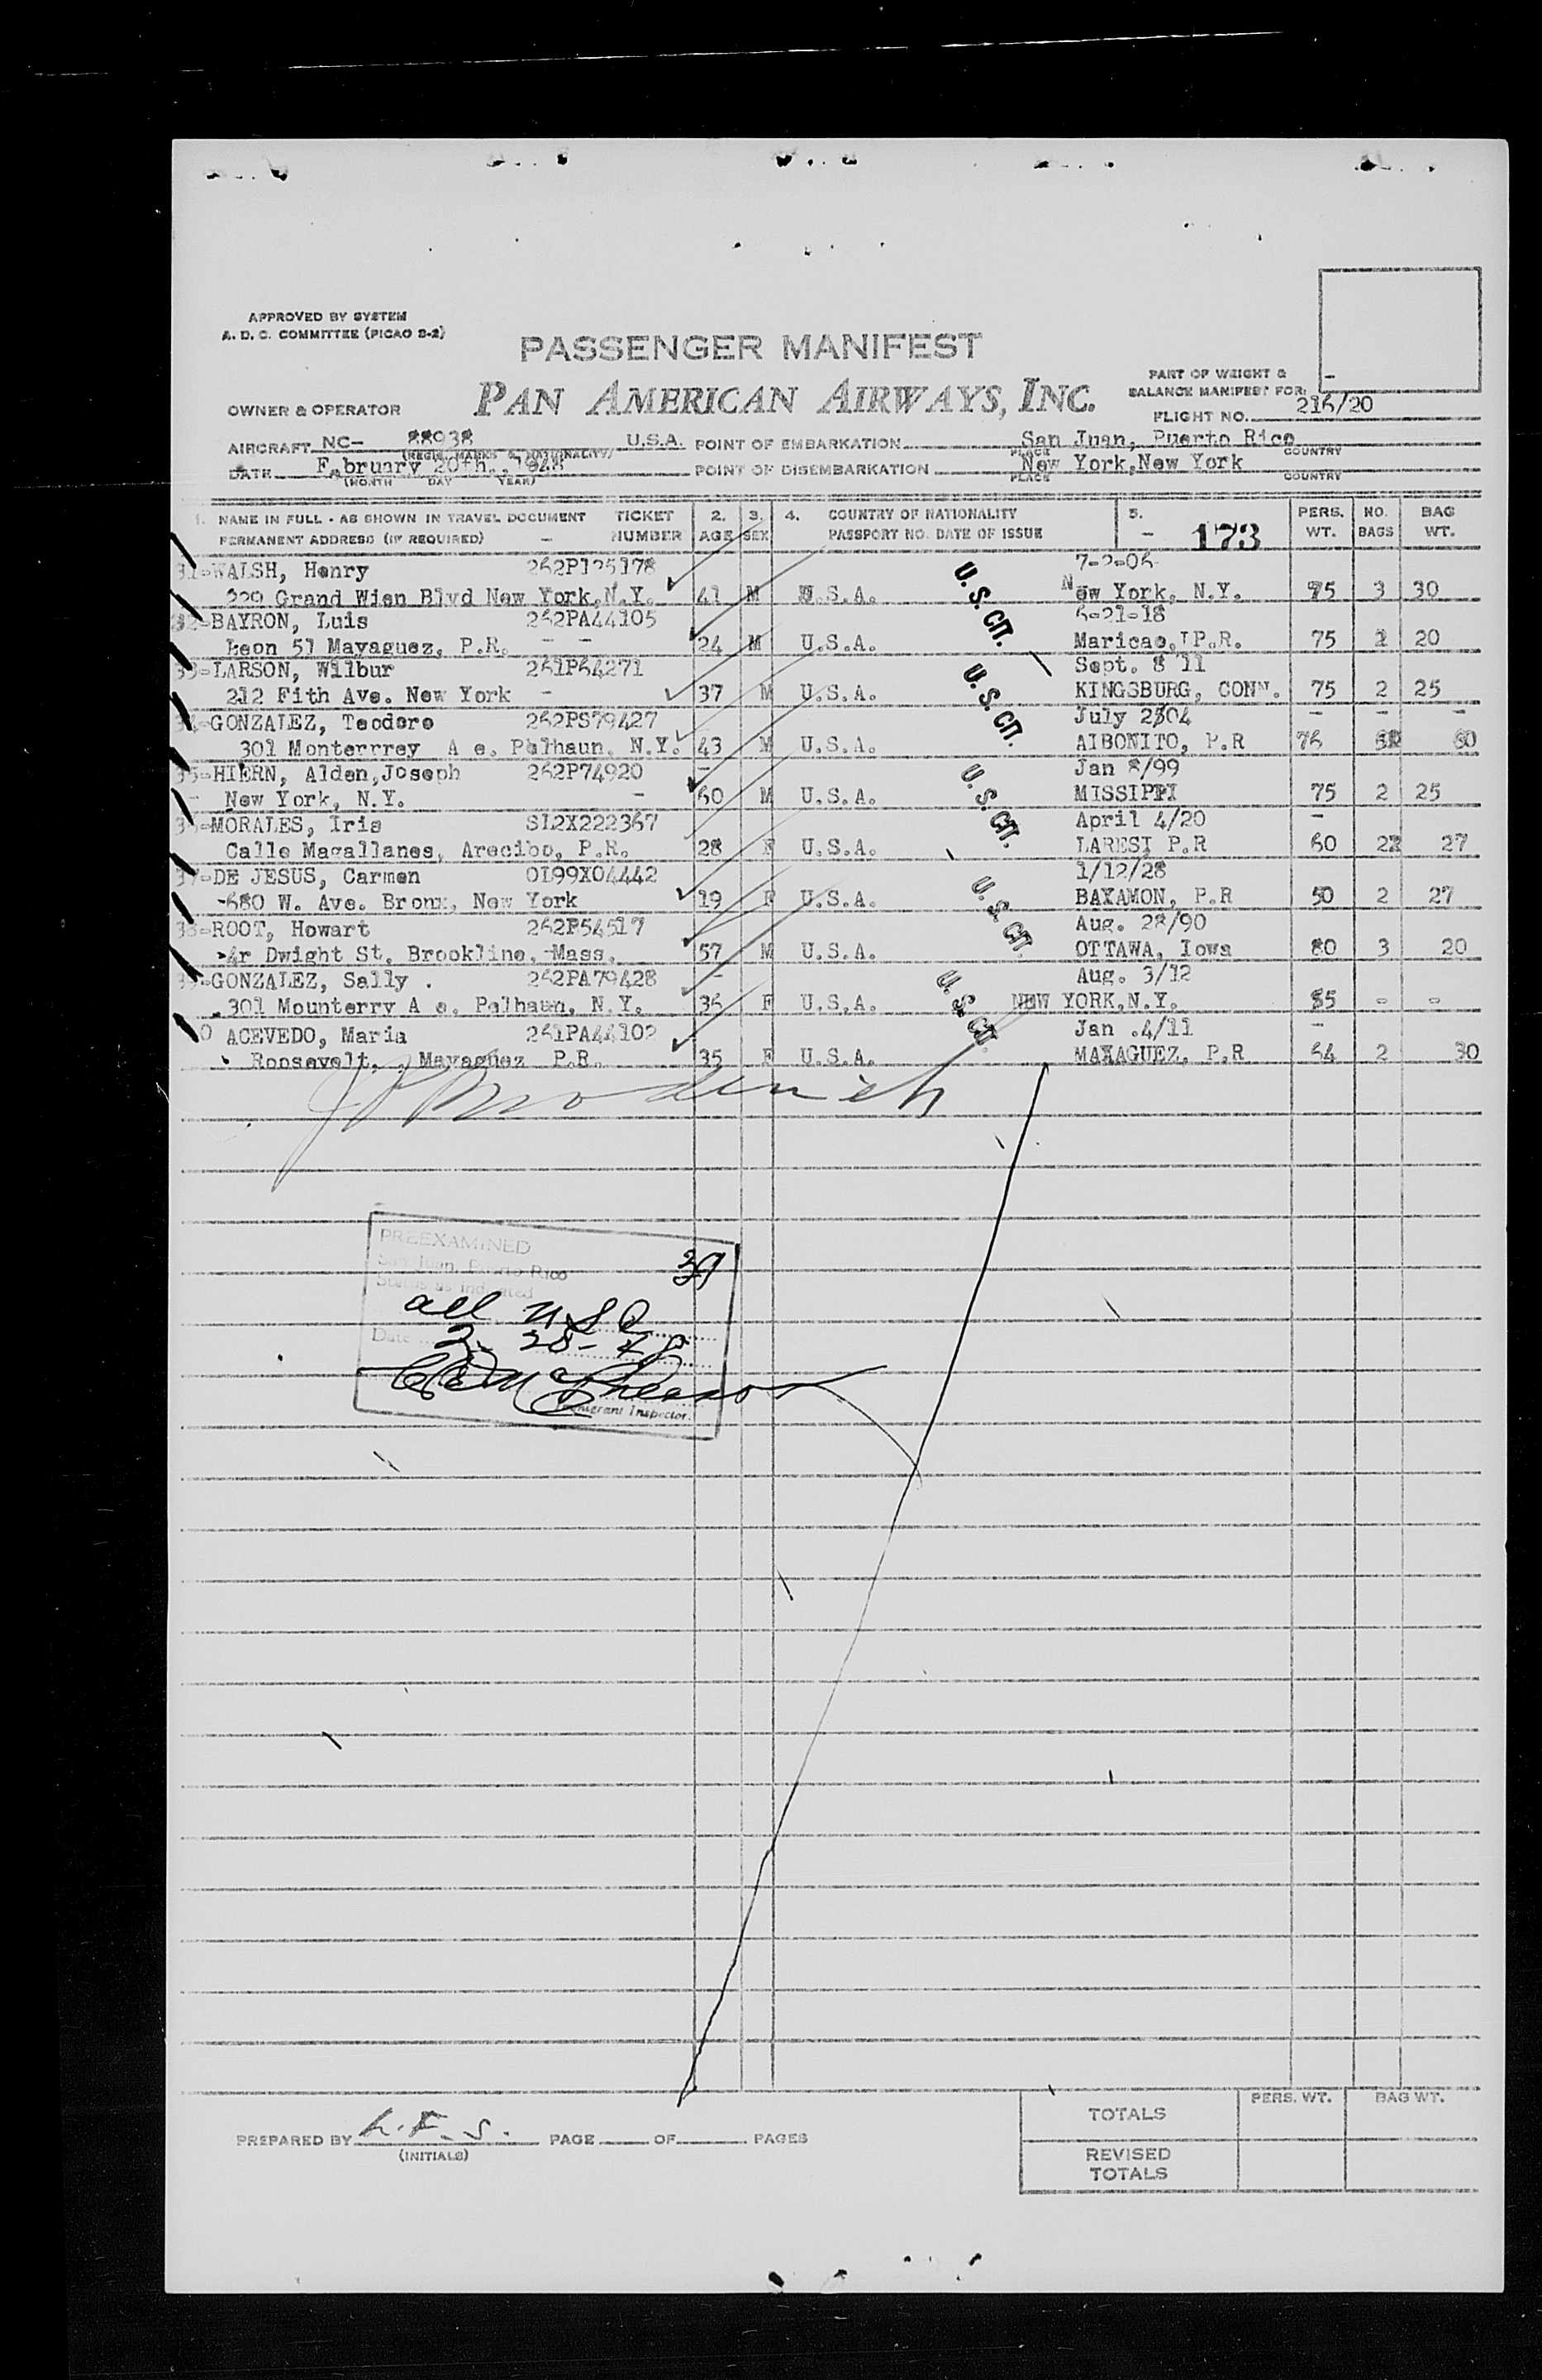 APPROVED BY SYSTEM
A. D. C. COMMITTEE (PICAO S-2)
PASSENGER MANIFEST
PAN AMERICAN AIRWAYS, INC.
PART OF WEIGHT &
BALANCE MANIFEST FOR:
OWNER & OPERATOR
FLIGHT NO. 216/20
AIRCRAFT NC- 88938 U.S.A. POINT OF EMBARKATION San Juan, Puerto Rico
(REGIS. MARKS & NATIONALITY) PLACE COUNTRY
DATE February 20th., 1948 POINT OF DISEMBARKATION New York,New York
(MONTH DAY YEAR) PLACE COUNTRY
1. NAME IN FULL - AS SHOWN IN TRAVEL DOCUMENT TICKET 2. 3. 4. COUNTRY OF NATIONALITY 5. PERS. NO. BAG
PERMANENT ADDRESS (IF REQUIRED) - NUMBER AGE SEX PASSPORT NO. DATE OF ISSUE - 173 WT. BAGS WT.
31-WALSH, Henry 262P125178 7-2-06
229 Grand Wien Blvd New York,N.Y. 41 M U.S.A. U. S. CIT. New York, N.Y. 75 3 30
32-BAYRON, Luis 262PA44105 6-21-18
Leon 51 Mayaguez, P.R. - - 24 M U.S.A. Maricao, P.R. 75 20
33-LARSON, Wilbur 261P64271 Sept. 8 11
212 Fith Ave. New York - 37 M U.S.A. U. S. CIT. KINGSBURG, CONN. 75 2 25
34-GONZALEZ, Teodoro 262PS79427 July - - -
301 Monterrrey A e. Palhaun, N.Y. 43 M U.S.A. AIBONITO, P.R 76
35-HIERN, Alden,Joseph 262P74920 - Jan 8/99
- New York, N.Y. - 60 M U.S.A. U. S. CIT. MISSIPPI 75 2 25
36-MORALES, Iris SI2X222367 April 4/20 -
Calle Magallanes, Arecibo, P.R. 28 F U.S.A. P.R 60 27
37-DE JESUS, Carmen OI99X04442 1/12/28
-680 W. Ave. Bronx, New York 19 F U.S.A. U. S. CIT. BAYAMON, P.R 50 2 27
38-ROOT, Howart 262P54517 Aug. 28/90
4r Dwight St. Brookline, Mass. 57 M U.S.A. OTTAWA, Iowa 80 3 20
39-GONZALEZ, Sally . 262PA79428 - Aug. 3/12
301 Mounterry A e. Palhaun, N.Y. 36 F U.S.A. U. S. CIT. NEW YORK,N.Y. - -
0 ACEVEDO, Maria 261PA44102 Jan .4/11 -
Roosevelt, , Mayaguez P.R. 35 F U.S.A. MAYAGUEZ, P.R 64 2 30
PREEXAMINED
San Juan, Puerto Rico
39
Status as indicated
all USC
Date 2- 20- 48
Immigrant Inspector.
PREPARED BY L. F. S. PAGE OF PAGES
(INITIALS)
PERS. WT. BAG WT.
TOTALS
REVISED
TOTALS